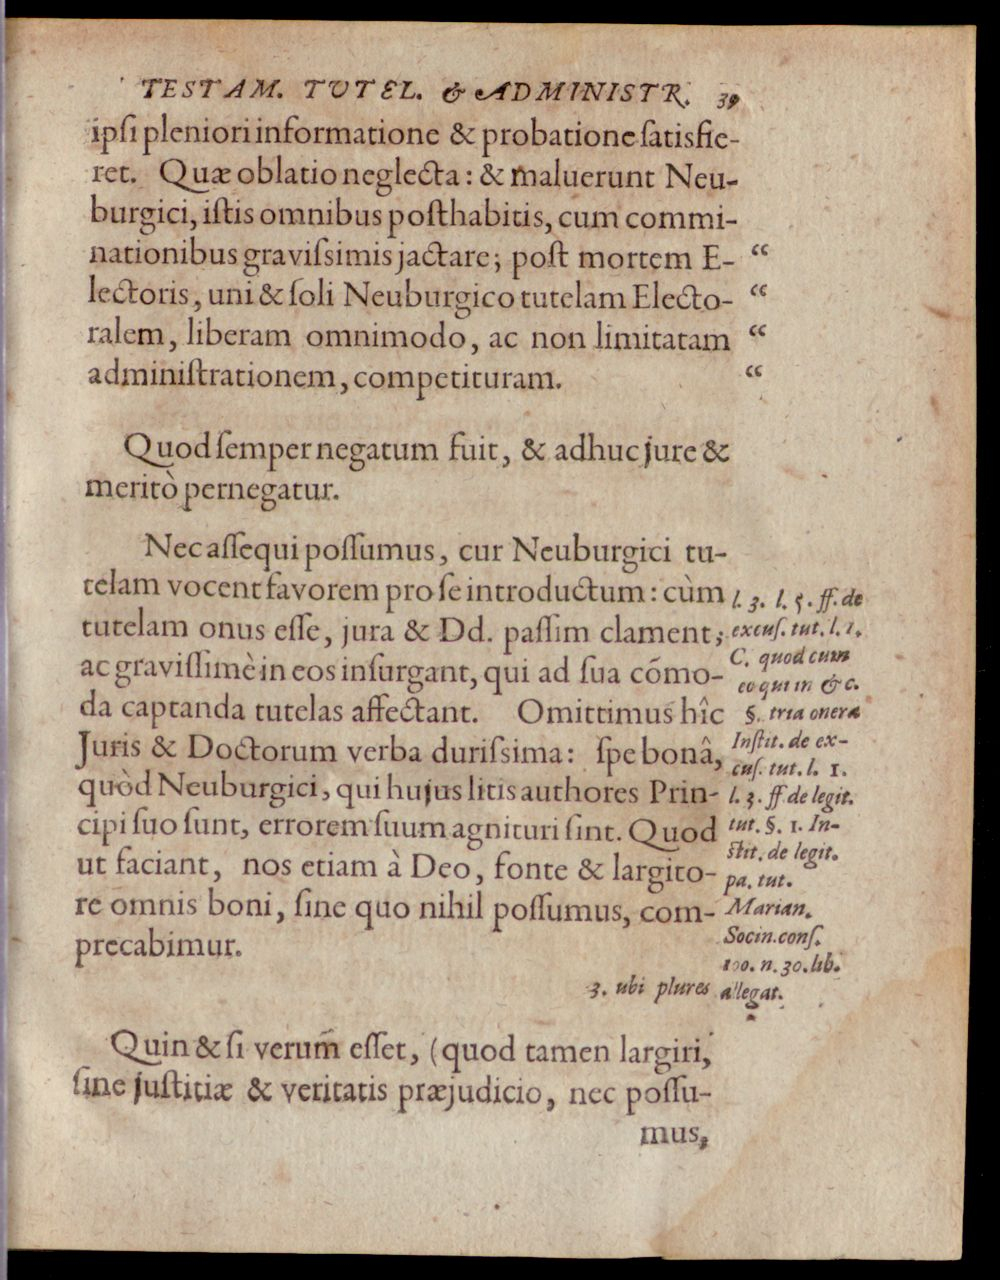 TESTAM. TVTEL. & ADMINISTR. 39
ipſi pleniori informatione & probatione ſatisfie-
ret. Quæ oblatio neglecta: & maluerunt Neu-
burgici, iſtis omnibus poſthabitis, cum commi-
nationibus graviſsimis jactare; poſt mortem E- “
lectoris, uni & ſoli Neuburgico tutelam Electo- “
ralem, liberam omnimodo, ac non limitatam “
adminiſtrationem, competituram. “
Quod ſemper negatum fuit, & adhuc jure &
meritò pernegatur.
Nec aſſequi poſſumus, cur Neuburgici tu-
telam vocent favorem pro ſe introductum: cùm
tutelam onus eſſe, jura & Dd. paſſim clament;
ac graviſſimè in eos inſurgant, qui ad ſua cōmo-
da captanda tutelas affectant. Omittimus hîc
Juris & Doctorum verba duriſsima: ſpe bonâ,
quòd Neuburgici, qui hujus litis authores Prin-
cipi ſuo ſunt, errorem ſuum agnituri ſint. Quod
ut faciant, nos etiam à Deo, fonte & largito-
re omnis boni, ſine quo nihil poſſumus, com-
precabimur.
l. 3. l. 5. ff. de
excuſ. tut. l. 1.
C. quod cum
eo qui in &c.
§. tria onera
Inſtit. de ex-
cuſ. tut. l. 1.
l. 3. ff. de legit.
tut. §. 1. In-
ſtit. de legit.
pa. tut.
Marian.
Socin. conſ.
100. n. 30. lib.
3. ubi plures allegat.
Quin & ſi verum eſſet, (quod tamen largiri,
ſine juſtitiæ & veritatis præjudicio, nec poſſu-
mus,